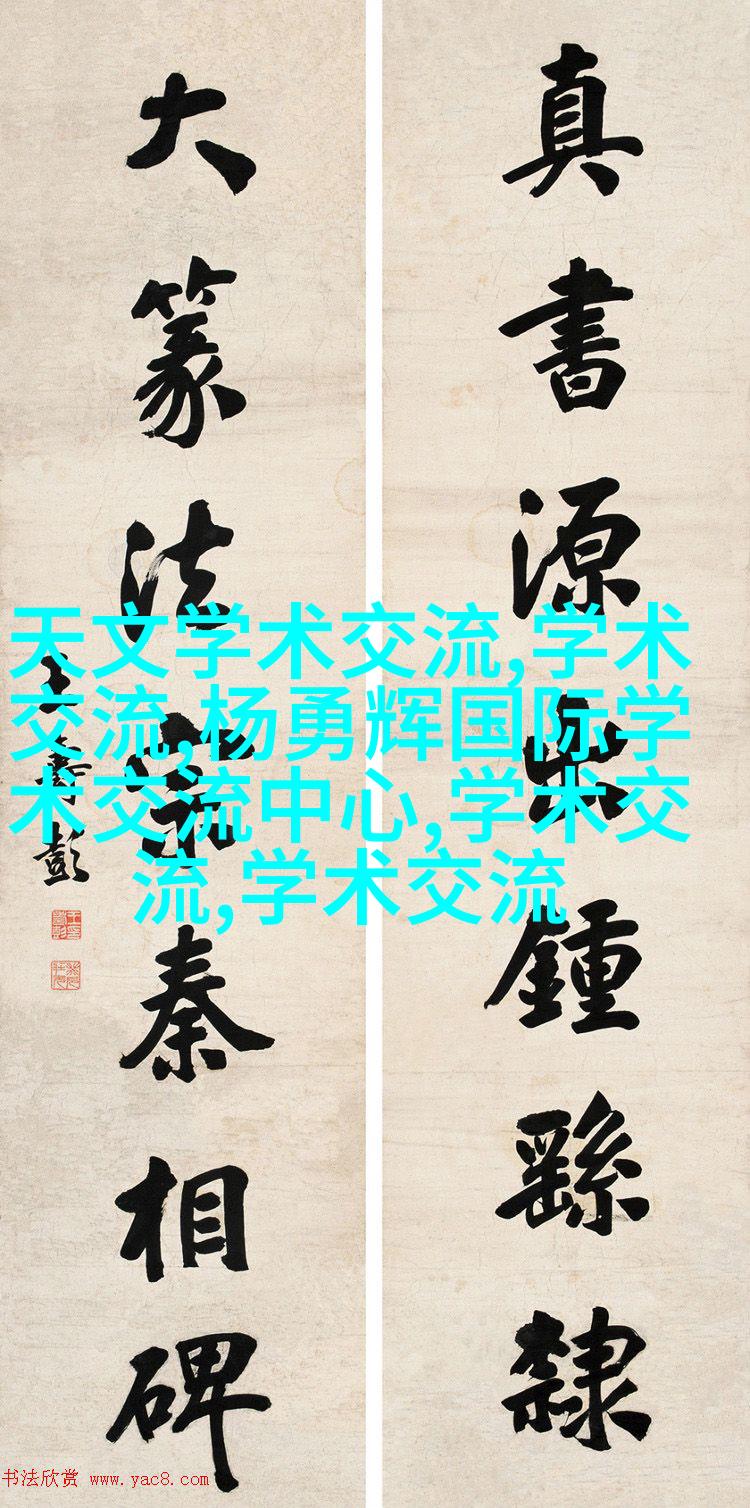 真書源出鍾繇隸
大篆法宗秦相碑
王壽彭
天文学术交流,学术
交流,杨勇辉国际学
术交流中心,学术交
流,学术交流
书法欣赏 www.yac8.com